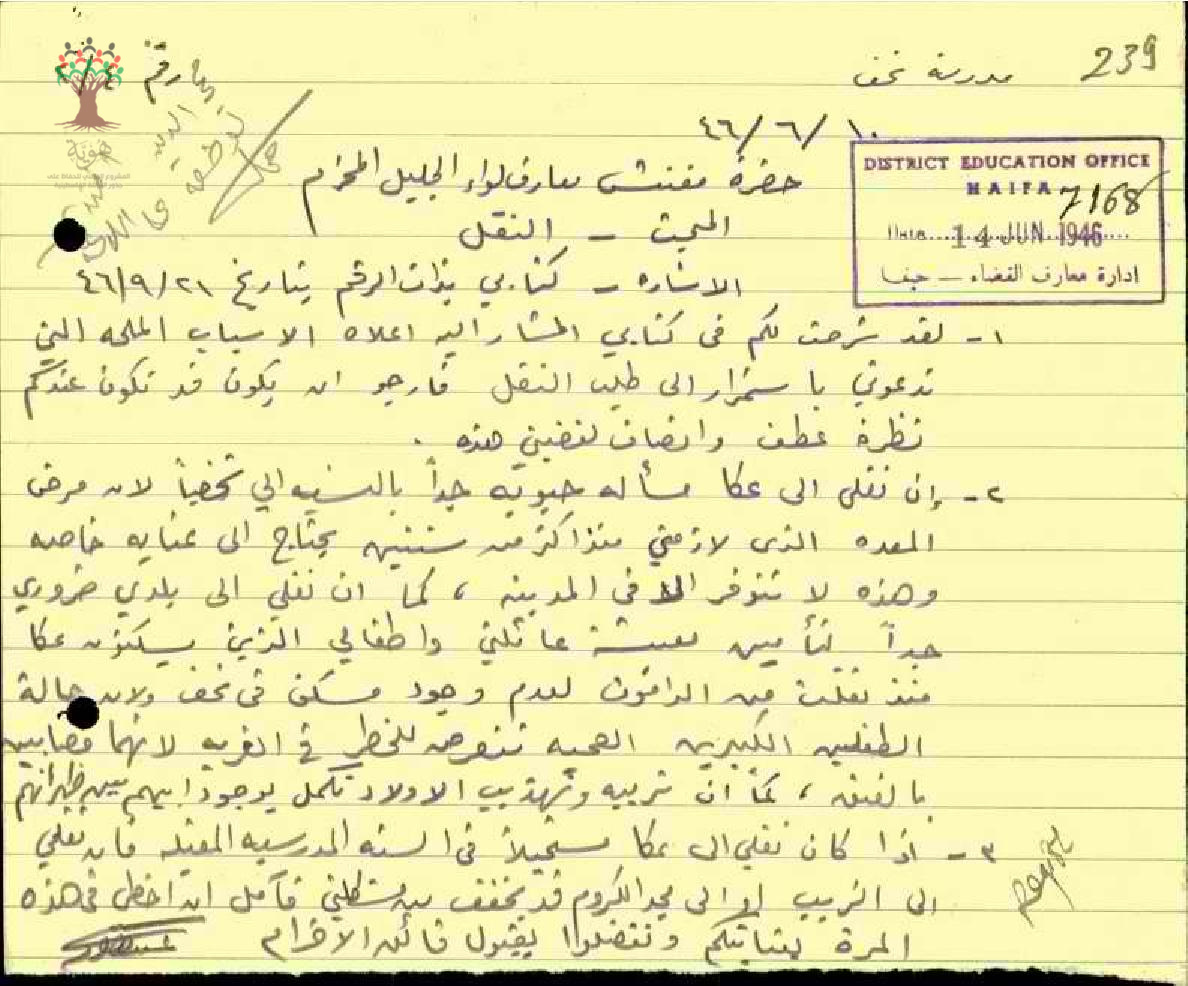 239
مدرسة نحف
رقم ٢/٤
١٠/٦/٤٦
DISTRICT EDUCATION OFFICE
HAIFA
7168
Date....14 JUN 1946....
ادارة معارف القضاء – حيفا
حضرة مفتش معارف لواء الجليل المحترم
المبحث – النقل
الاشاره – كتابي بذات الرقم بتاريخ ٢١/٩/٤٦
١- لقد شرحت لكم فى كتابي المشار اليه اعلاه الاسباب الملحه التي
تدعوني باستمرار الى طلب النقل فارجو ان يكون قد تكون عندكم
نظرة عطف وانصاف لقضيتي هذه .
٢- إن نقلي الى عكا مسأله حيويه جداً بالنسبه الي شخصياً لان مرض
المعده الذى لازمني منذ اكثر من سنتين يحتاج الى عنايه خاصه
وهذه لا تتوفر الا فى المدينه ، كما ان نقلي الى بلدي ضروري
جداً لتأمين معيشة عائلتي واطفالي الذين يسكنون عكا
منذ نقلت من الدامون لعدم وجود مسكن فى نحف ولان حالة
الطفلين الكبيرين الصحيه تتعرض للخطر في القريه لانهما مصابين
بالفتق ، كما أن تربيه وتهذيب الاولاد تكمل بوجود ابيهم بين ظهرانهم
٣- اذا كان نقلي الى عكا مستحيلاً فى السنه المدرسيه المقبله فان نقلي
الى الزيب او الى مجد الكروم قد يخفف من مشكلتي فآمل ان احظى فى هذه
المرة بعنايتكم وتفضلوا بقبول فائق الاحترام